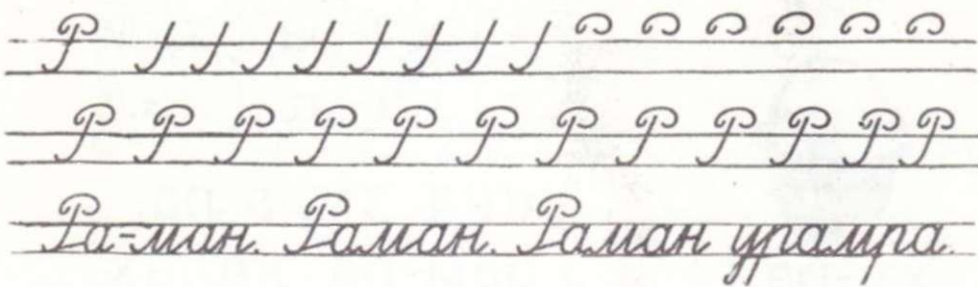 Р
Р Р Р Р Р Р Р Р Р Р Р Р
Ра-ман. Раман. Раман урамра.